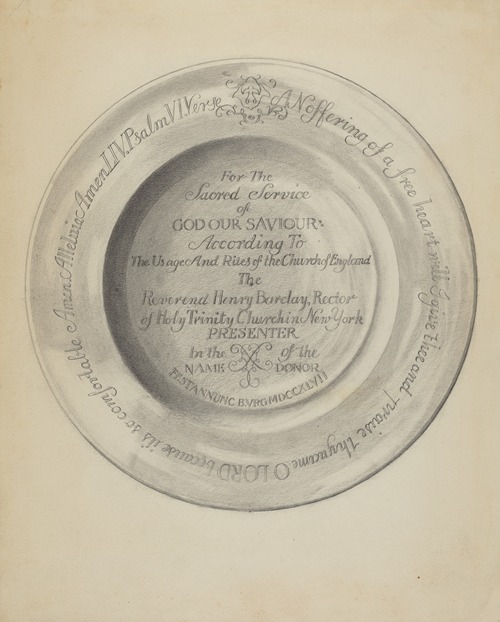 AN offering of a free heart will I give thee and praise thy name O LORD because it is so comfortable Amen. Alleluia Amen LIV. Psalm VI. Verse
For The
Sacred Service
of
GOD OUR SAVIOUR:
According To
The Usage And Rites of the Church of England
The
Reverend Henry Barclay, Rector
of Holy Trinity Church in New York
PRESENTER
In the of the
NAME DONOR
FEST ANNUNC B.V. MDCCXLVII